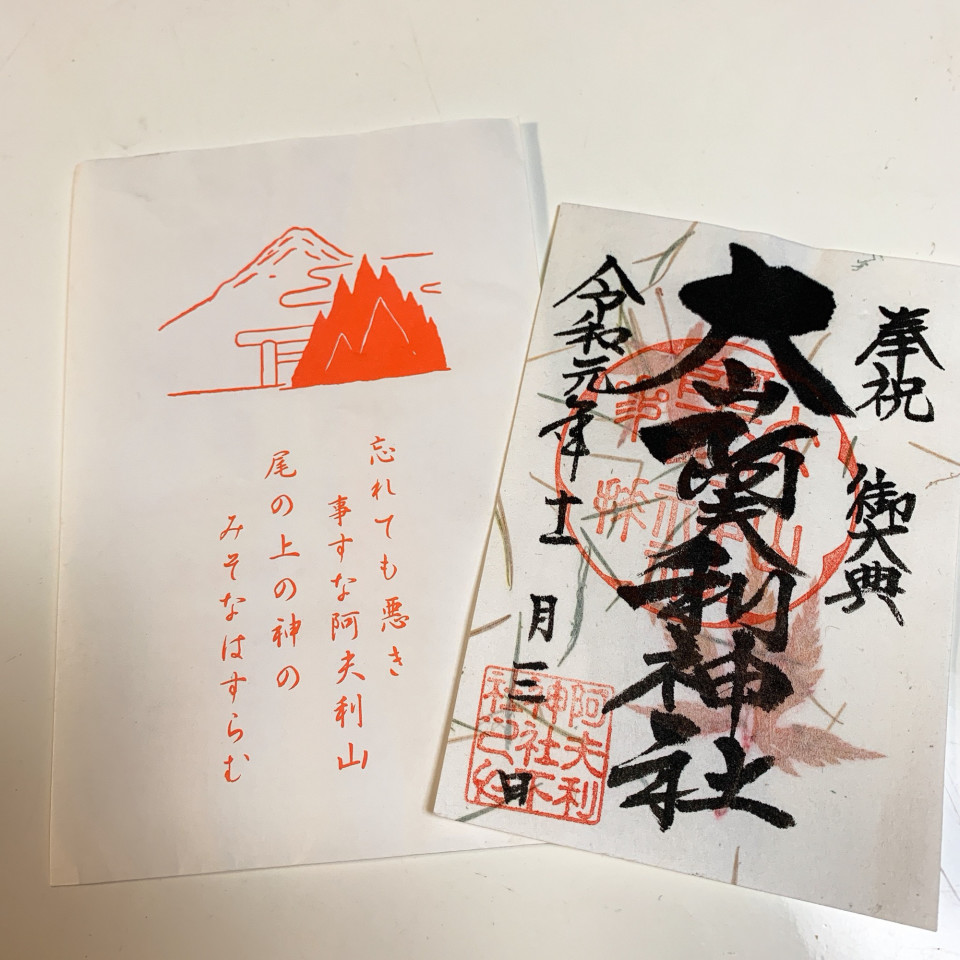 忘れても悪き
事すな阿夫利山
尾の上の神の
みそなはすらむ
奉祝 御大典
大山阿夫利神社
令和元年十一月三日
阿夫利
神社下
社